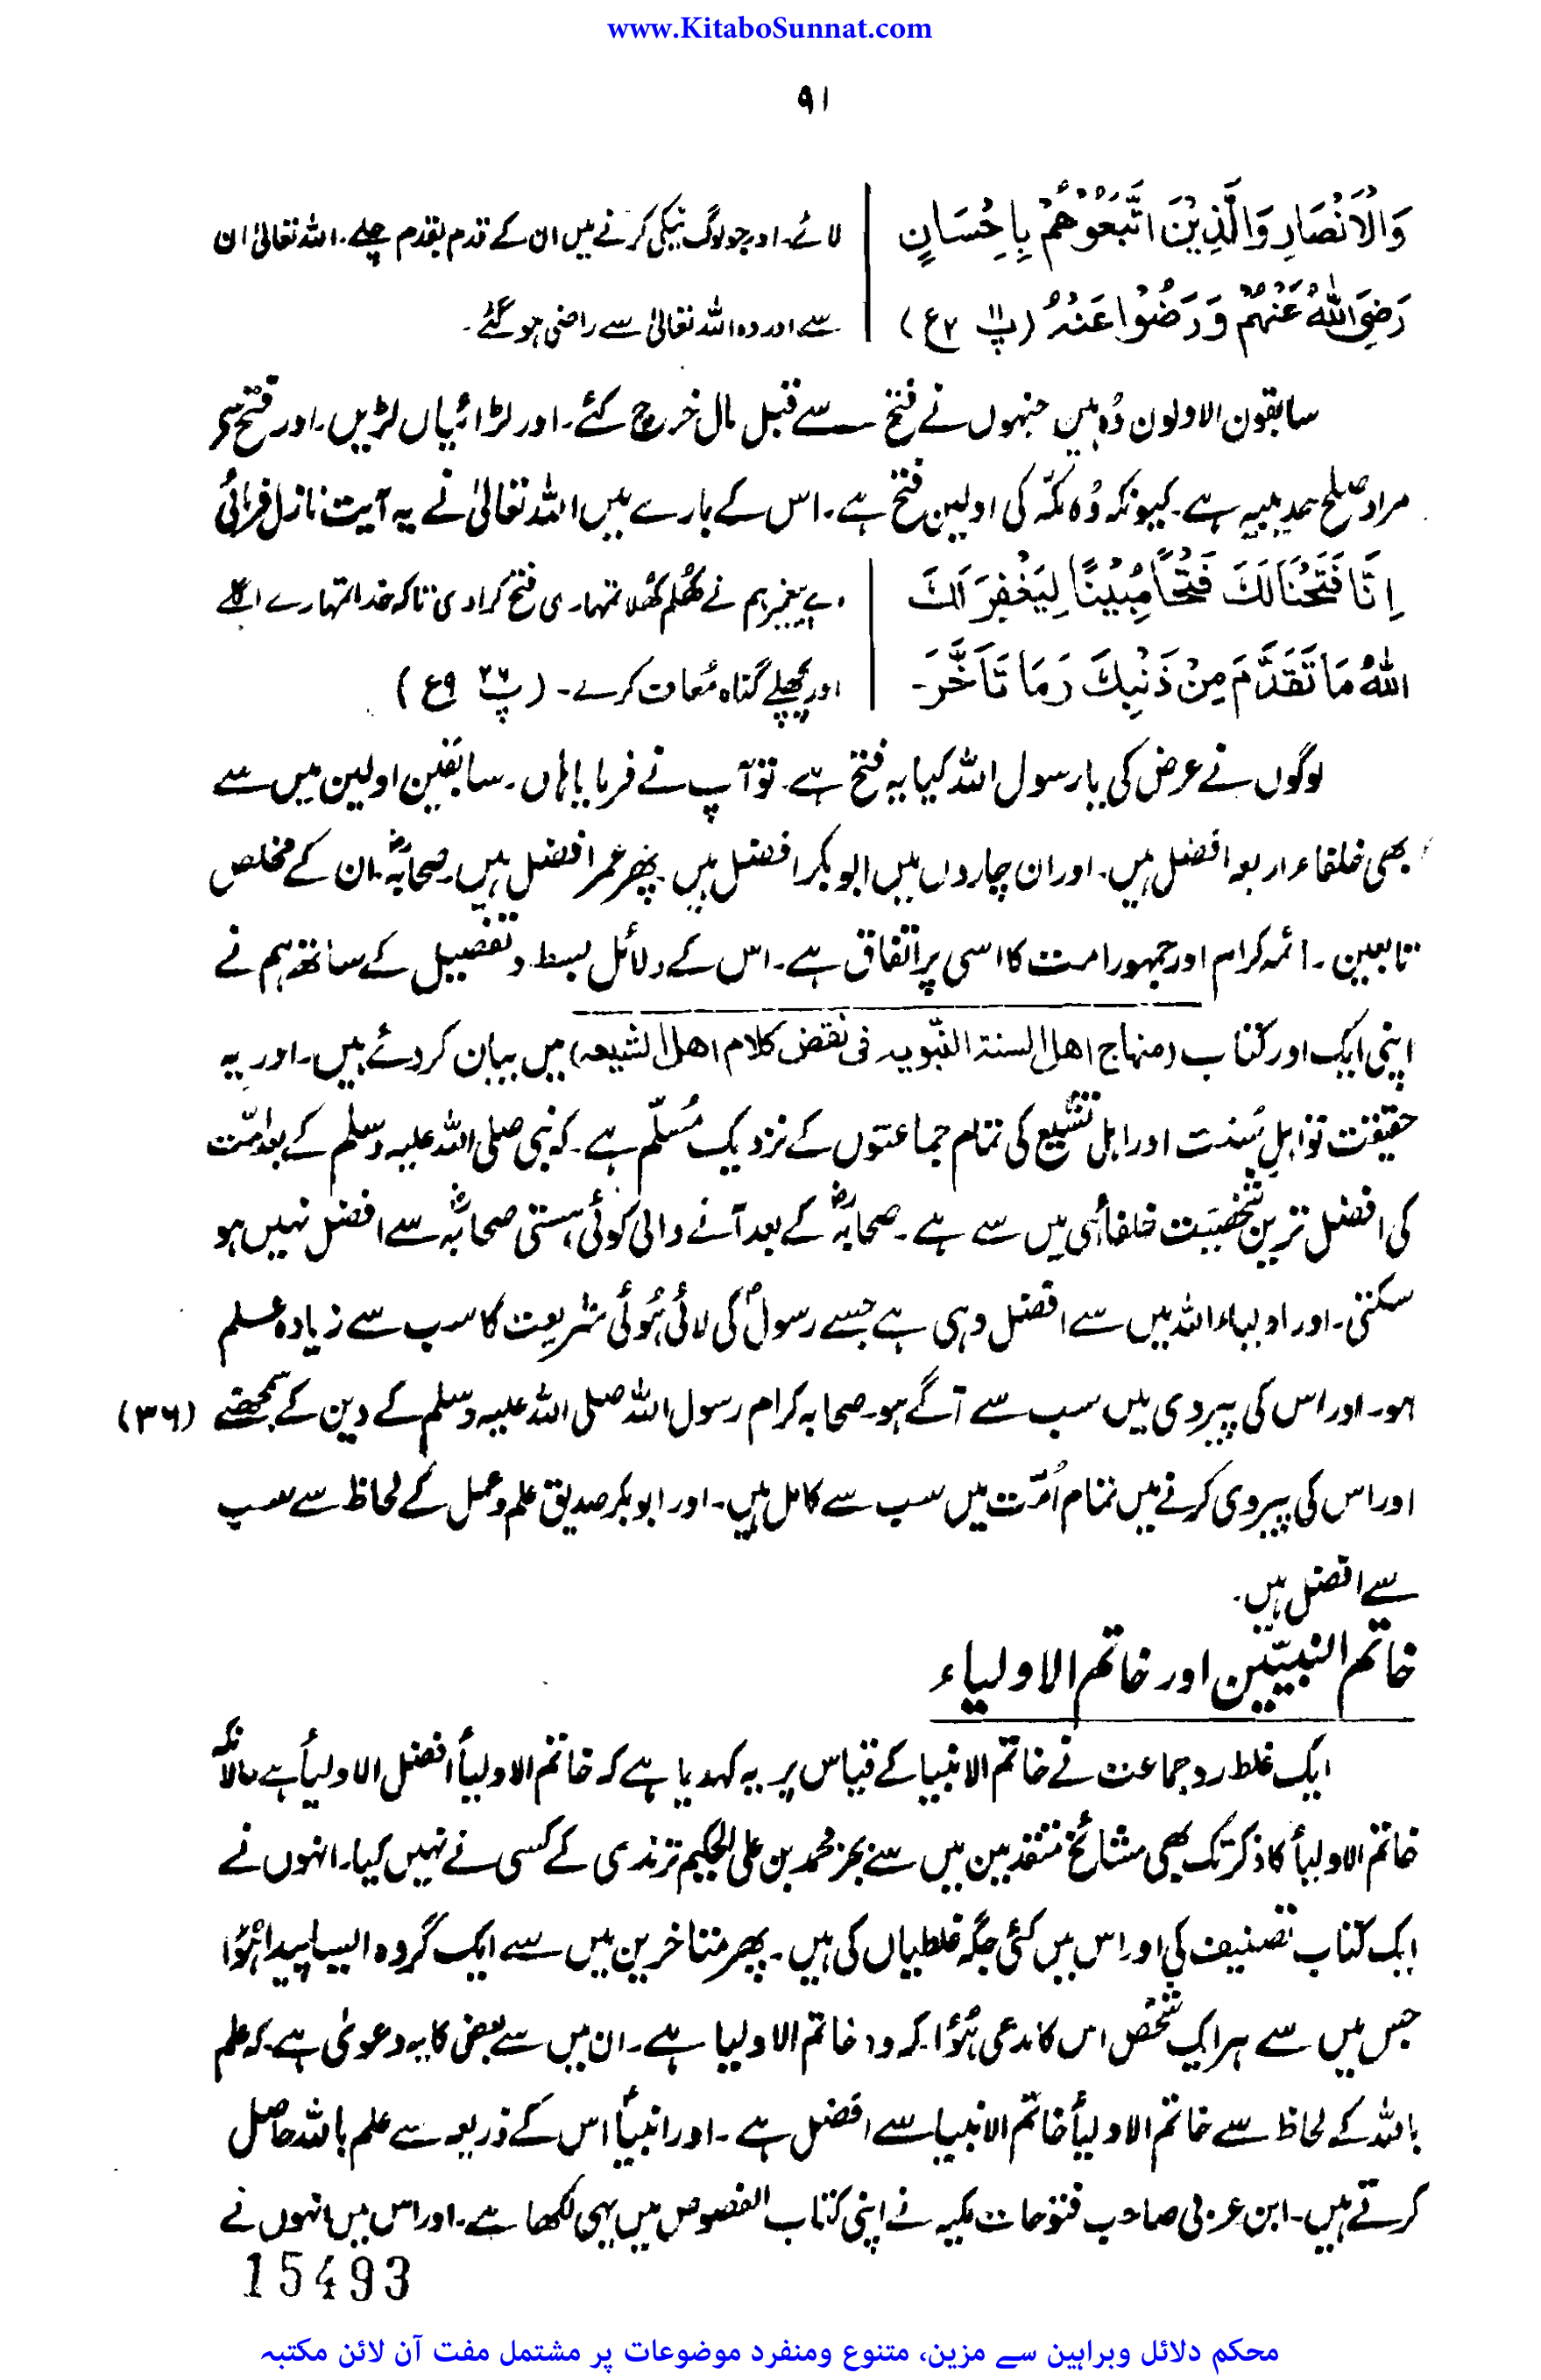 www.KitaboSunnat.com
۹۱
وَالْاَنْصَارِ وَالَّذِیْنَ اتَّبَعُوْهُمْ بِاِحْسَانٍ
رَضِیَ اللّٰهُ عَنْهُمْ وَرَضُوْا عَنْهُ (پ ۱۱ ۲ع)
لائے۔ اور جو لوگ نیکی کرنے میں ان کے قدم بقدم چلے۔ اللہ تعالیٰ ان
سے اور وہ اللہ تعالیٰ سے راضی ہو گئے۔
سابقون الاولون وُہ ہیں جنہوں نے فتح سے قبل مال خرچ کئے۔ اور لڑائیاں لڑیں۔ اور فتح سے
مراد صلح حدیبیہ ہے۔ کیونکہ وُہ مکّہ کی اولین فتح ہے۔ اس کے بارے میں اللہ تعالیٰ نے یہ آیت نازل فرمائی
اِنَّا فَتَحْنَا لَكَ فَتْحًا مُّبِیْنًا لِیَغْفِرَ لَكَ
اللّٰهُ مَا تَقَدَّمَ مِنْ ذَنْبِكَ وَمَا تَاَخَّرَ۔
اے پیغمبر ہم نے کھُلم کھُلا تمہاری فتح کرادی تاکہ خدا تمہارے اگلے
اور پچھلے گناہ مُعاف کرے۔ (پ ۲۶ ۹ع)
لوگوں نے عرض کی یا رسول اللہ کیا یہ فتح ہے۔ تو آپ نے فرمایا ہاں۔ سابقین اولین میں سے
بھی خلفاء اربعہ افضل ہیں۔ اور ان چاروں میں ابو بکر افضل ہیں۔ پھر عمر افضل ہیں۔ صحابہؓ۔ ان کے مخلص
تابعین۔ ائمہ کرام اور جمہور امت کا اسی پر اتفاق ہے۔ اس کے دلائل بسط و تفصیل کے ساتھ ہم نے
اپنی ایک اور کتاب (منہاج اھل السنۃ النبّویہ فی نقض کلام اھل الشیعہ) میں بیان کر دئے ہیں۔ اور یہ
حقیقت تو اہلِ سُنت اور اہل تشیّع کی تمام جماعتوں کے نزدیک مُسلّم ہے۔ کہ نبی صلی اللہ علیہ وسلم کے بعد امّت
کی افضل ترین شخصیّت خلفاؑ ہی میں سے ہے۔ صحابہؓ کے بعد آنے والی کوئی ہستی صحابہؓ سے افضل نہیں ہو
سکتی۔ اور اولیاء اللہ میں سے افضل وہی ہے جسے رسولؐ کی لائی ہُوئی شریعت کا سب سے زیادہ علم
ہو۔ اور اس کی پیروی میں سب سے آگے ہو۔ صحابہ کرام رسول اللہ صلی اللہ علیہ وسلم کے دین کے سمجھنے (۳۶)
اور اس کی پیروی کرنے میں تمام اُمّت میں سب سے کامل ہیں۔ اور ابو بکر صدیق علم و عمل کے لحاظ سے سب
سے افضل ہیں۔
خاتم النبیّین اور خاتم الاولیاء
ایک غلط رو جماعت نے خاتم الانبیا کے قیاس پر یہ کہدیا ہے کہ خاتم الاولیأ افضل الاولیأ ہے حالانکہ
خاتم الاولیأ کا ذکر تک بھی مشائخ متقدمین میں سے بجز محمد بن علی الحکیم ترمذی کے کسی نے نہیں کیا۔ انہوں نے
ایک کتاب تصنیف کی اور اس میں کئی جگہ غلطیاں کی ہیں۔ پھر متاخرین میں سے ایک گروہ ایسا پیدا ہُوا
جس میں سے ہر ایک شخص اس کا مدعی ہُوا کہ وہ خاتم الاولیا ہے۔ ان میں سے بعض کا یہ دعویٰ ہے کہ علم
باللہ کے لحاظ سے خاتم الاولیأ خاتم الانبیا سے افضل ہے۔ اور انبیاؑ اس کے ذریعہ سے علم باللہ حاصل
کرتے ہیں۔ ابن عربی صاحب فتوحات مکیہ نے اپنی کتاب الفصوص میں یہی لکھا ہے۔ اور اس میں انہوں نے
15493
محکم دلائل وبراہین سے مزین، متنوع ومنفرد موضوعات پر مشتمل مفت آن لائن مکتبہ